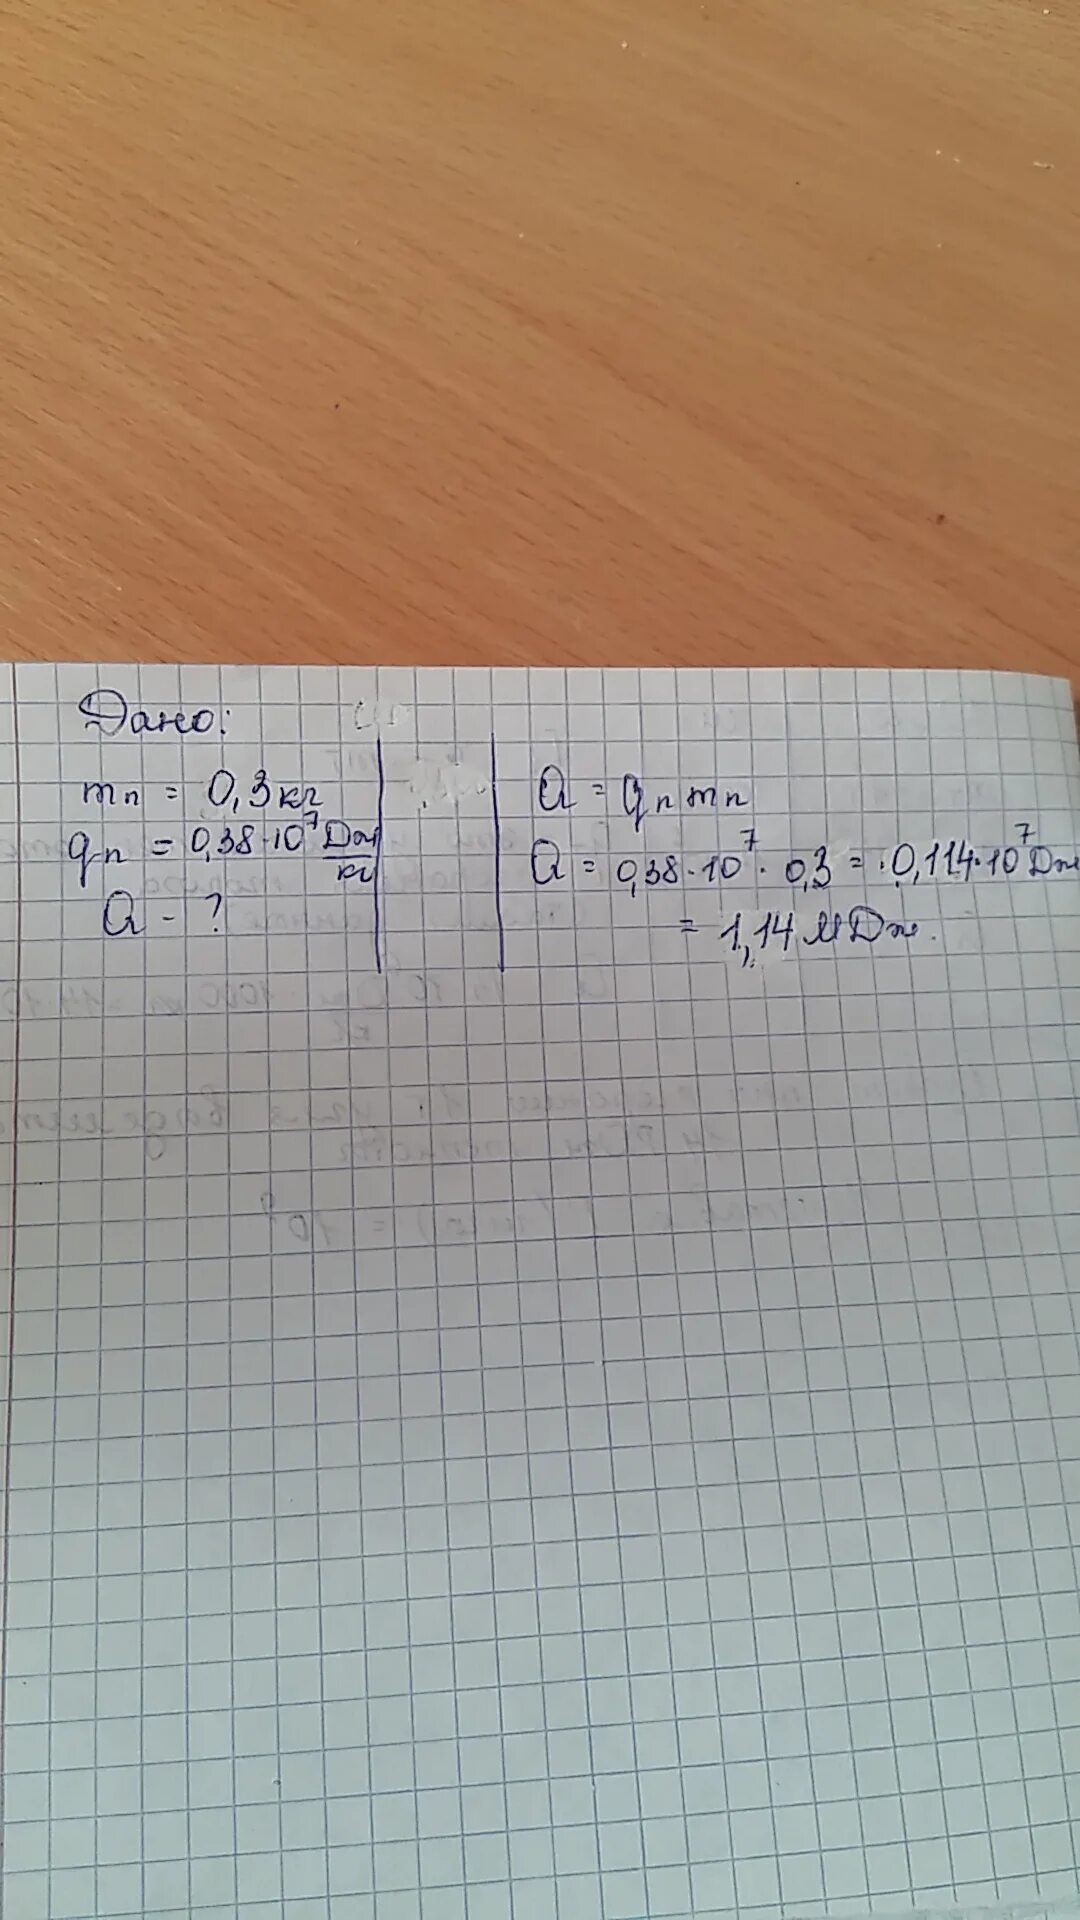 Дано:
mп = 0,3 кг
qп = 0,38·10⁷ Дж/кг
Q - ?
Q = qп mп
Q = 0,38·10⁷ · 0,3 = 0,114·10⁷ Дж
= 1,14 МДж.